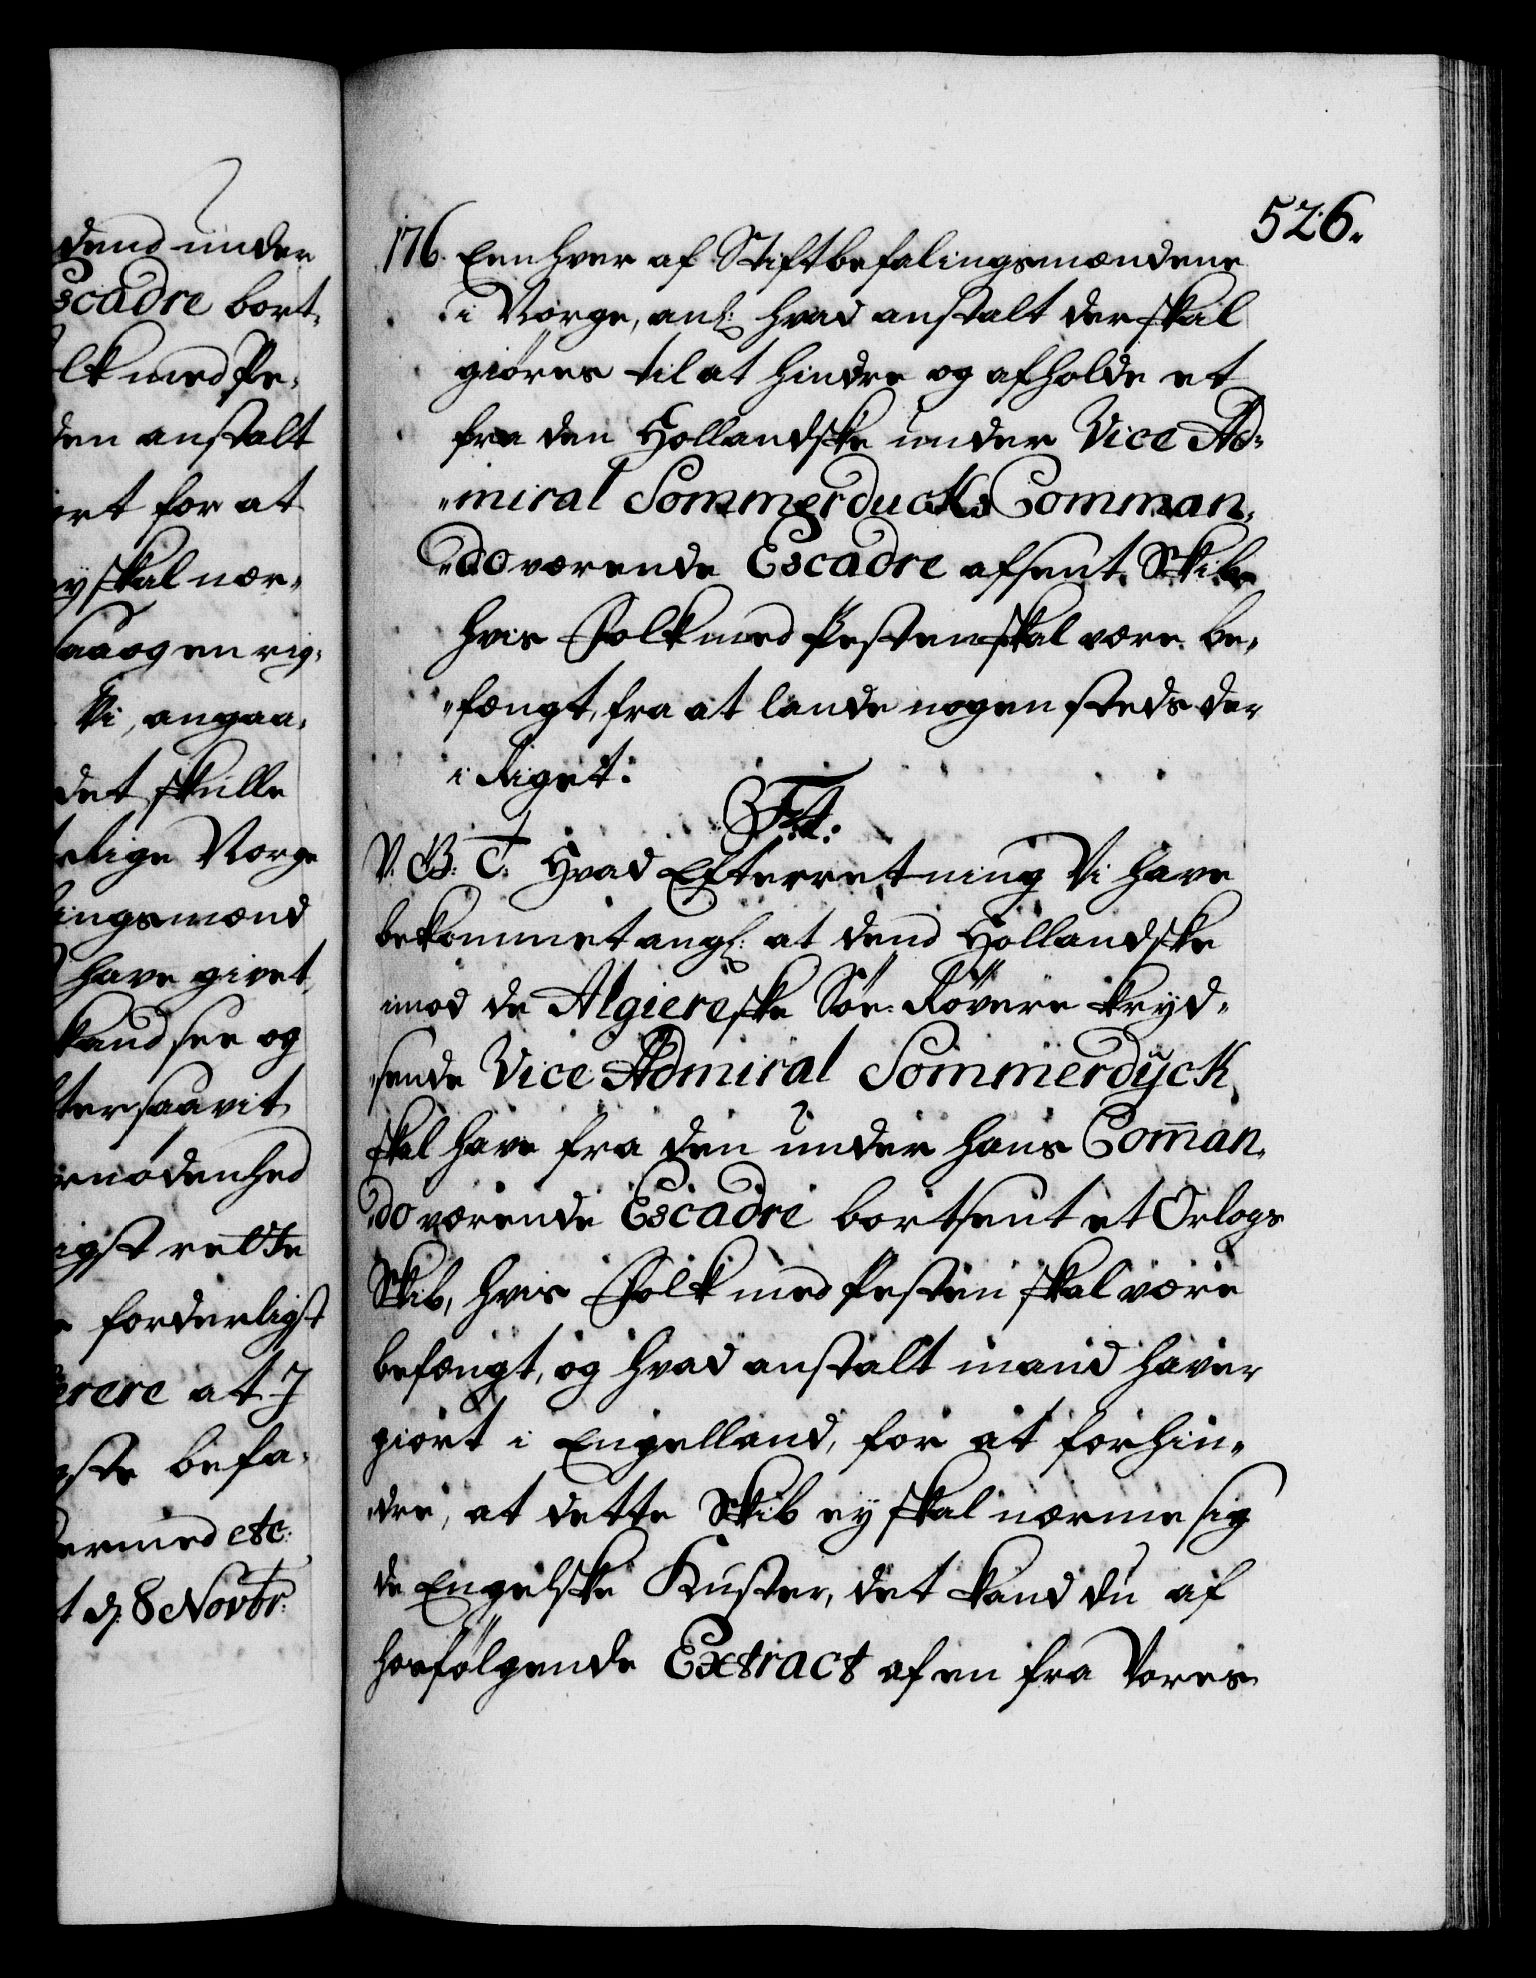 dend under
Escadre bort-
olk med Pe-
den anstalt
iort for at
ey skal nær-
saa og en rig-
Vi, angaa-
det skulle
Norge
lingsmænd
have givet,
kand see og
saavit
ornødenhed
igst rette
forderligst
erere at I
befa-
dermed etc:
d: 8 Novbr:
526.
176. Een hver af Stiftbefalingsmændene
i Norge, anl: hvad anstalt der skal
giøres til at hindre og afholde et
fra den Hollandske under Vice Ad-
miral Sommerducks Comman-
do værende Escadre afsent Skib
hvis Folk med Pesten skal være be-
fængt, fra at lande nogen steds der
i Riget.
F:4:
V. G: T: Hvad Efterretning Vi have
bekommet angl: at dend Hollandske
imod de Algiereske Søe-Røvere kryd-
sende Vice Admiral Sommerdyck
skal have fra den under hans Com̅an-
do værende Escadre bortsent et Orlogs
Skib, hvis Folk med Pesten skal være
befængt, og hvad anstalt mand haver
giort i Engelland, for at forhin-
dre, at dette Skib ey skal nærme sig
de Engelske Kuster, det kand du af
hosfølgende Extract af en fra Vores